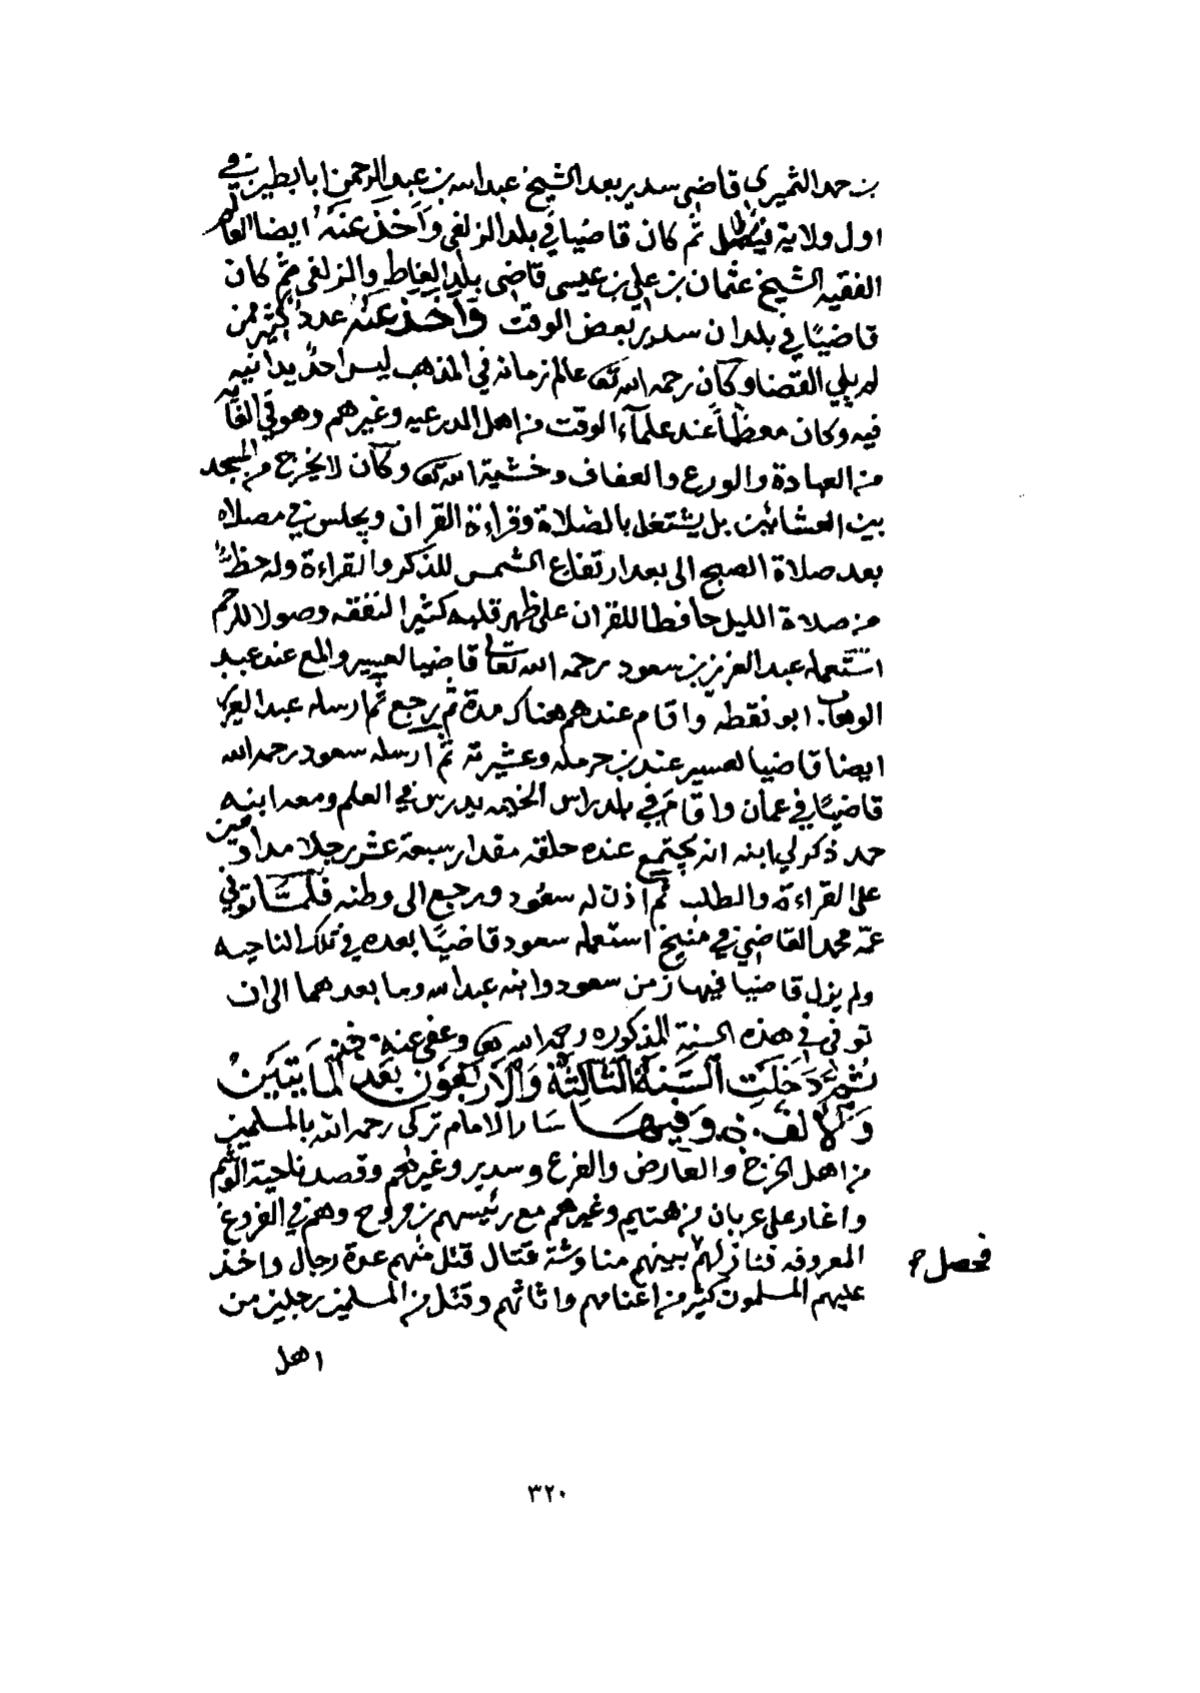 بن حمد الثميري قاضي سدير بعد الشيخ عبد الله بن عبد الرحمن ابا بطين في
اول ولاية فيصل ثم كان قاضيا في بلد الزلفي وأخذ عنه ايضا العالم
الفقيه الشيخ عثمان بن علي بن عيسى قاضي بلد الغاط والزلفي ثم كان
قاضيًا في بلدان سدير بعض الوقت وأخذ عنه عدد كثير ممن
لم يلي القضا وكان رحمه الله تعالى عالم زمانه في المذهب ليس احدٌ يدانيه
فيه وكان معظماً عند علمآء الوقت من اهل الدرعيه وغيرهم وهو في الغايه
من العبادة والورع والعفاف وخشية الله تعالى وكان لا يخرج من المسجد
بين العشائين بل يشتغل بالصلاة وقراءة القران ويجلس في مصلاه
بعد صلاة الصبح الى بعد ارتفاع الشمس للذكر والقراءة وله حظٌ
من صلاة الليل حافطا للقران على ظهر قلبه كثير النفقه وصولا للرحم
استعمله عبد العزيز بن سعود رحمه الله تعالى قاضيا لعسير والمع عند عبد
الوهاب ابو نقطه واقام عندهم هناك مدة ثم رجع ثم ارسله عبد العزيز
ايضا قاضيا لعسير عند بن حرمله وعشيرته ثم ارسله سعود رحمه الله
قاضيًا في عمان واقام في بلد راس الخيمه يدرس في العلم ومعه ابنه
حمد ذكر لي ابنه انه يجتمع عنده حلقه مقدار سبعة عشر رجلا مداومين
على القراءة والطلب ثم اذن له سعود ورجع الى وطنه فلمّا توفي
عمّه محمد القاضي في منيخ استعمله سعود قاضيًا بعده في تلك الناحيه
ولم يزل قاضيا فيها زمن سعود وابنه عبد الله وما بعدهما الى ان
توفي في هذه السنة المذكوره رحمه الله تعالى وعفى عنه
ثُمَّ دَخَلَتِ السَّنَةُ الثَّالِثَة وَالأَرْبَعُوْن بَعْدَ المَايَتَيْن
وَالألف وَفيها سَار الامام تركي رحمه الله بالمسلمين
من اهل الخرج والعارض والفرع وسدير وغيرهم وقصد ناحية الوشم
واغار على عربان من هتيم وغيرهم مع رئيسهم بن مروح وهم في الفروع
المعروفه فنازلهم بينهم مناوشة قتال قتل منهم عدة رجال واخذ
فحصل م
عليهم المسلمون كثير من اغنامهم واثاثهم وقتل من المسلمين رجلين من
اهل
٣٢٠